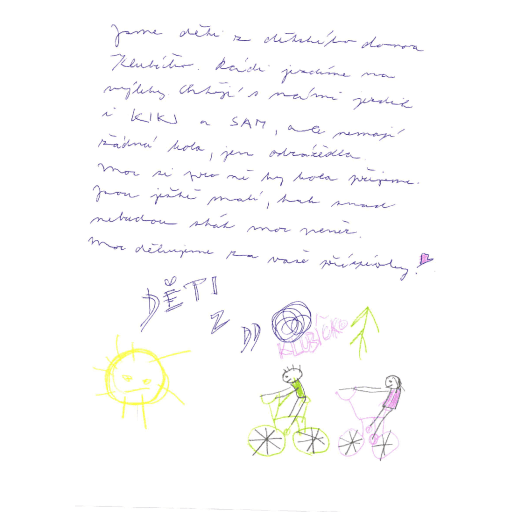 Jsme děti z dětského domova
Klubíčko. Rádi jezdíme na
výlety. Chtějí s námi jezdit
i KIKI a SAM, ale nemají
žádná kola, jen odrážedla.
Moc si pro ně by kola přejeme.
Jsou ještě malí, tak snad
nebudou stát moc peněz.
Moc děkujeme za vaše příspěvky!
DĚTI
Z DD
KLUBÍČKO